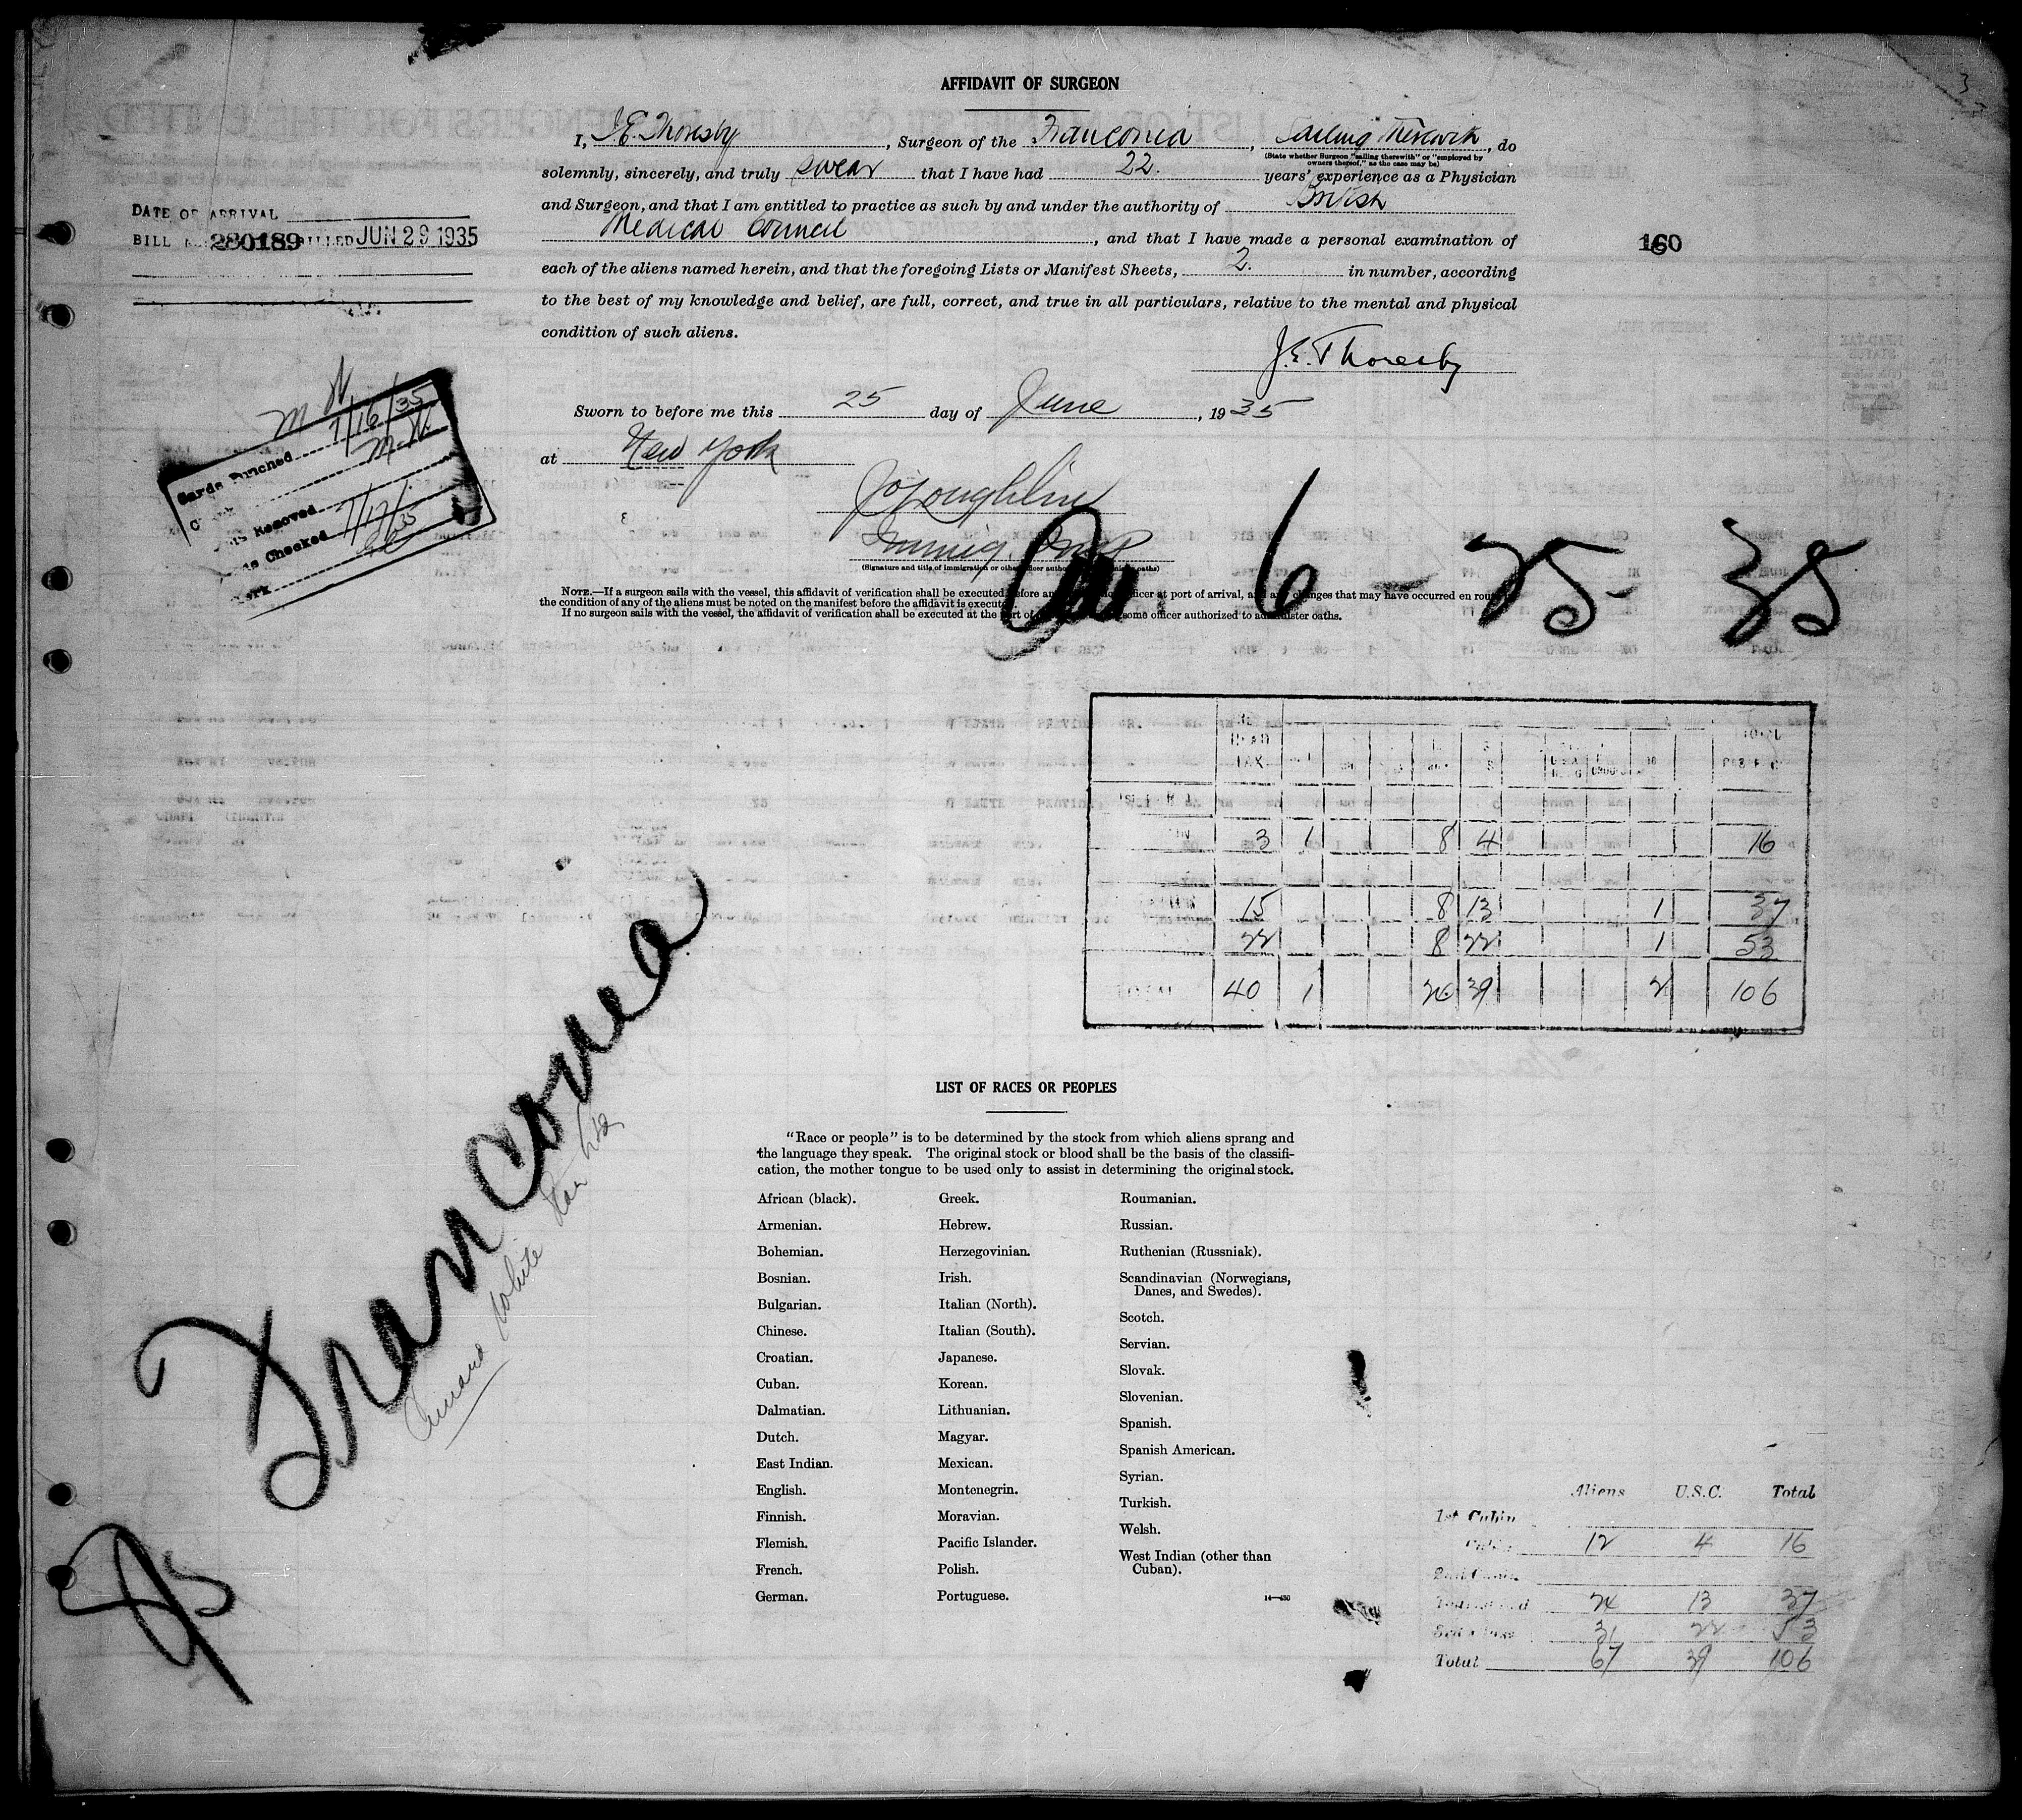 AFFIDAVIT OF SURGEON
I, J.E. Thoresby, Surgeon of the Franconia, Sailing therewith, do
(State whether Surgeon "sailing therewith" or "employed by
owners thereof," as the case may be)
solemnly, sincerely, and truly swear that I have had 22. years' experience as a Physician
and Surgeon, and that I am entitled to practice as such by and under the authority of British
Medical Council, and that I have made a personal examination of
each of the aliens named herein, and that the foregoing Lists or Manifest Sheets, 2. in number, according
to the best of my knowledge and belief, are full, correct, and true in all particulars, relative to the mental and physical
condition of such aliens.
J.E. Thoresby
Sworn to before me this 25 day of June, 1935
at New York
J O'Loughlin
Immig. Insp
(Signature and title of immigration or other officer authorized to administer oaths)
NOTE.—If a surgeon sails with the vessel, this affidavit of verification shall be executed before an officer at port of arrival, and any changes that may have occurred en route
the condition of any of the aliens must be noted on the manifest before the affidavit is executed
If no surgeon sails with the vessel, the affidavit of verification shall be executed at the port of some officer authorized to administer oaths.
DATE OF ARRIVAL
BILL 280189 BILLED JUN 29 1935
160
M N
Cards Punched 7/16/35
M.N.
Removed
Checked 7/17/35
Clerk
6-25-35
HEAD
TAX
TOTAL
3 1 8 4 16
15 8 13 1 37
22 8 22 1 53
TOTAL 40 1 24 39 2 106
Franconia
Cunard White Star Ltd
LIST OF RACES OR PEOPLES
"Race or people" is to be determined by the stock from which aliens sprang and
the language they speak. The original stock or blood shall be the basis of the classifi-
cation, the mother tongue to be used only to assist in determining the original stock.
African (black).
Armenian.
Bohemian.
Bosnian.
Bulgarian.
Chinese.
Croatian.
Cuban.
Dalmatian.
Dutch.
East Indian.
English.
Finnish.
Flemish.
French.
German.
Greek.
Hebrew.
Herzegovinian.
Irish.
Italian (North).
Italian (South).
Japanese.
Korean.
Lithuanian.
Magyar.
Mexican.
Montenegrin.
Moravian.
Pacific Islander.
Polish.
Portuguese.
Roumanian.
Russian.
Ruthenian (Russniak).
Scandinavian (Norwegians,
Danes, and Swedes).
Scotch.
Servian.
Slovak.
Slovenian.
Spanish.
Spanish American.
Syrian.
Turkish.
Welsh.
West Indian (other than
Cuban).
14—430
Aliens U.S.C. Total
1st Cabin
Cabin 12 4 16
2nd Cabin
Tourist 24 13 37
3rd Class 31 22 53
Total 67 39 106